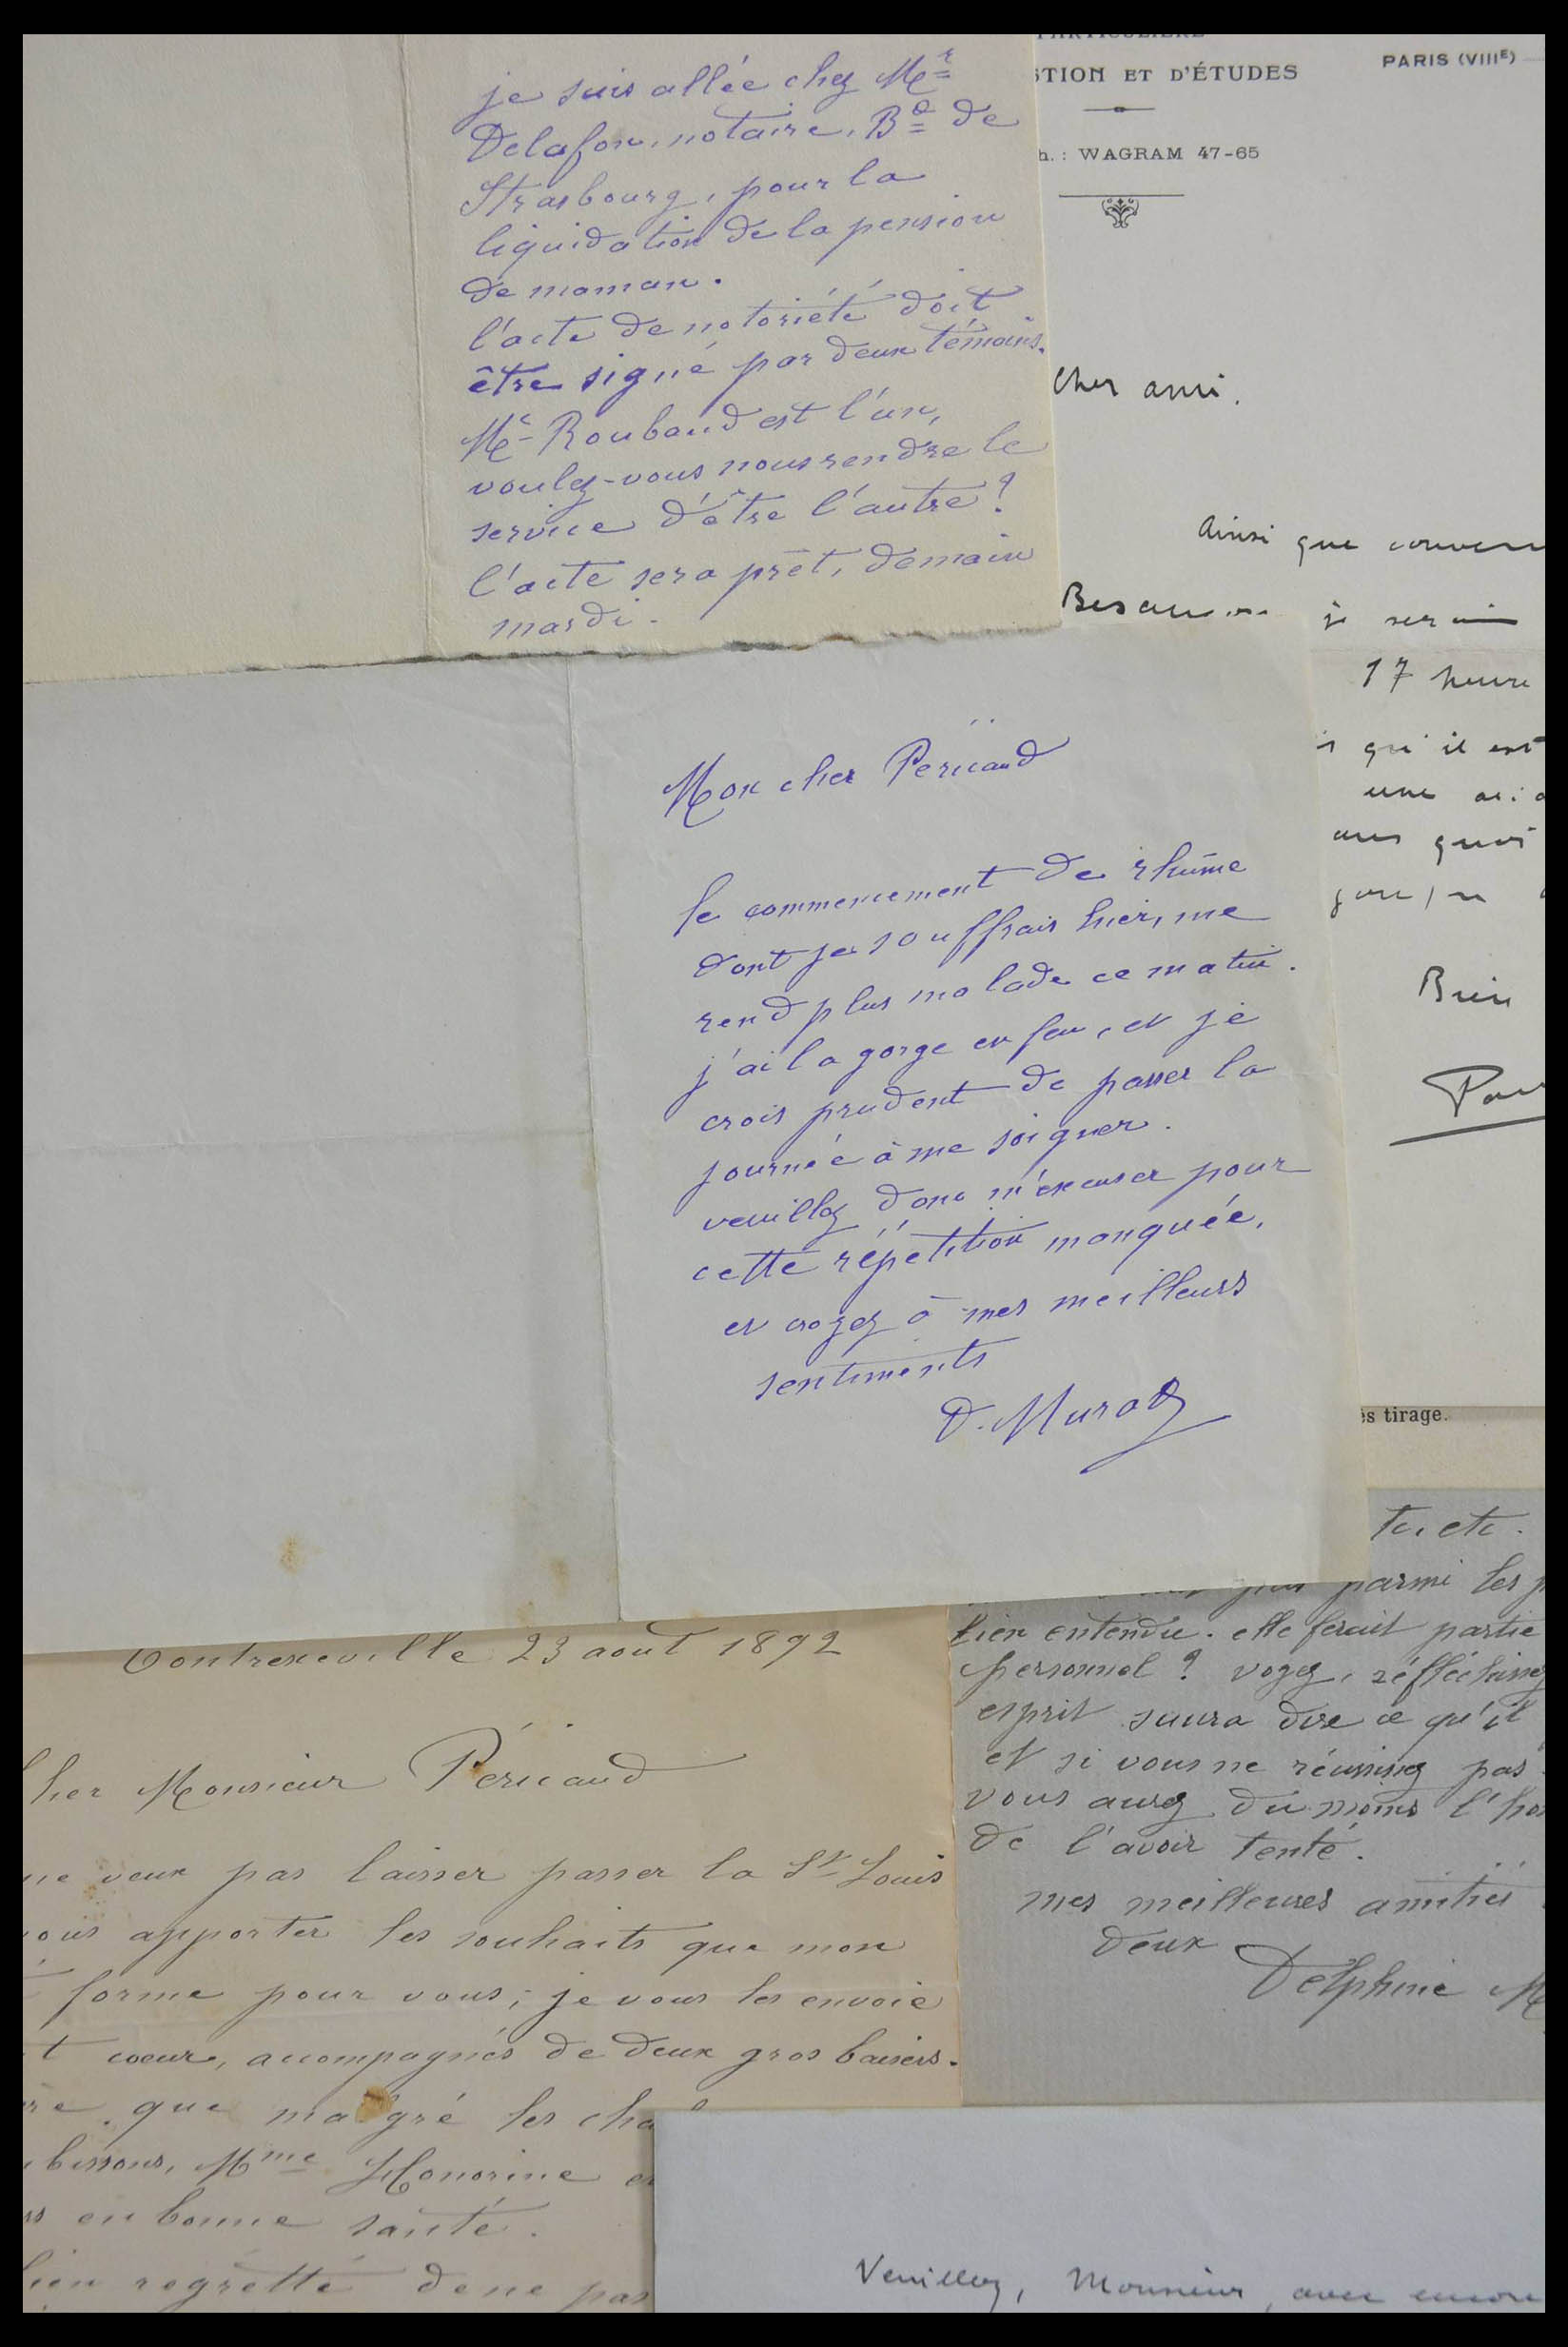 je suis allée chez Me
Delafon, notaire, Bd de
Strasbourg, pour la
liquidation de la pension
de maman.
l'acte de notoriété doit
être signé par deux témoins.
Mr Roubaud est l'un,
voulez-vous nous rendre le
service d'être l'autre?
l'acte sera prêt, demain
mardi.
PARTICULIÈRE
STION ET D'ÉTUDES
PARIS (VIIIE)
h. : WAGRAM 47-65
Cher ami.
Ainsi que conven
je serai
17 heure
qu'il est
une
quoi
Bien
Mon cher Péricaud
le commencement de rhûme
dont je souffrais hier, me
rend plus malade ce matin.
j'ai la gorge en feu, et je
crois prudent de passer la
journée à me soigner.
veuillez donc m'excuser pour
cette répétition manquée,
et croyez à mes meilleurs
sentiments
D. Murat
es tirage.
tc, etc.
parmi les p
bien entendu. elle ferait partie
personnel? voyez, réfléchissez
esprit saura dire ce qu'il
et si vous ne réussissez pas
vous aurez du moins l'hon
de l'avoir tenté.
mes meilleures amitiés
deux
Delphine M
Contrexeville 23 aout 1892
Cher Monsieur Péricaud
ne veux pas laisser passer la St Louis
vous apporter les souhaits que mon
forme pour vous; je vous les envoie
t coeur, accompagnés de deux gros baisers.
re que malgré les cha
bissons, Mme Honorine e
s en bonne santé.
bien regretté de ne pas
Veuillez, Monsieur, avec encore